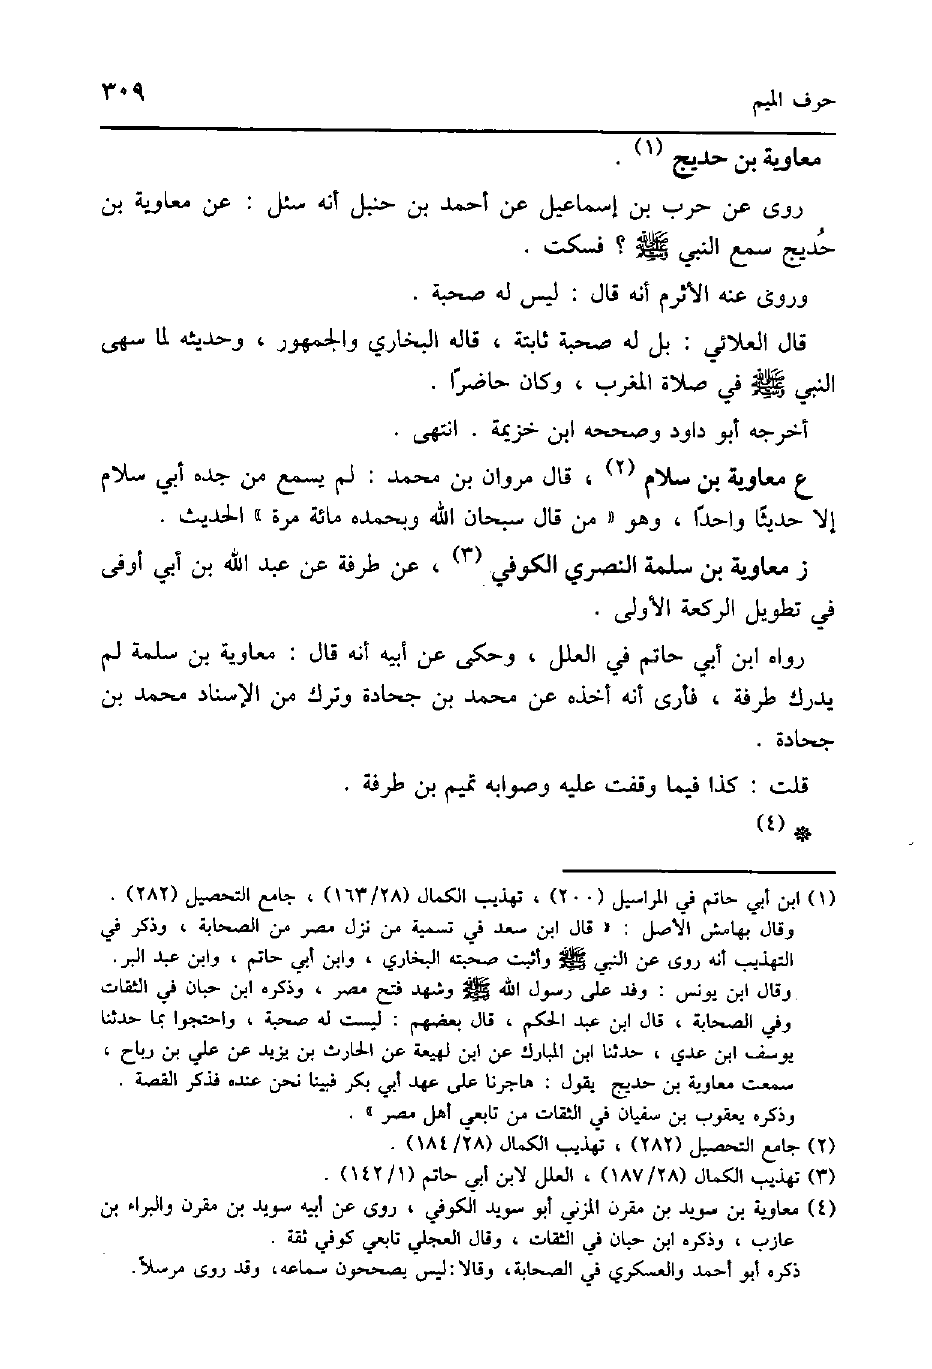 حرف الميم
٣٠٩
معاوية بن حديج (١) .
روى عن حرب بن إسماعيل عن أحمد بن حنبل أنه سئل : عن معاوية بن
حُديج سمع النبي ﷺ ؟ فسكت .
وروى عنه الأثرم أنه قال : ليس له صحبة .
قال العلائي : بل له صحبة ثابتة ، قاله البخاري والجمهور ، وحديثه لما سهى
النبي ﷺ في صلاة المغرب ، وكان حاضرًا .
أخرجه أبو داود وصححه ابن خزيمة . انتهى .
ع معاوية بن سلام (٢) ، قال مروان بن محمد : لم يسمع من جده أبي سلام
إلا حديثًا واحدًا ، وهو « من قال سبحان الله وبحمده مائة مرة » الحديث .
ز معاوية بن سلمة النصري الكوفي (٣) ، عن طرفة عن عبد الله بن أبي أوفى
في تطويل الركعة الأولى .
رواه ابن أبي حاتم في العلل ، وحكى عن أبيه أنه قال : معاوية بن سلمة لم
يدرك طرفة ، فأرى أنه أخذه عن محمد بن جحادة وترك من الإسناد محمد بن
جحادة .
قلت : كذا فيما وقفت عليه وصوابه تميم بن طرفة .
* (٤)
(١) ابن أبي حاتم في المراسيل (٢٠٠) ، تهذيب الكمال (١٦٣/٢٨) ، جامع التحصيل (٢٨٢) .
وقال بهامش الأصل : « قال ابن سعد في تسمية من نزل مصر من الصحابة ، وذكر في
التهذيب أنه روى عن النبي ﷺ وأثبت صحبته البخاري ، وابن أبي حاتم ، وابن عبد البر.
وقال ابن يونس : وفد على رسول الله ﷺ وشهد فتح مصر ، وذكره ابن حبان في الثقات
وفي الصحابة ، قال ابن عبد الحكم ، قال بعضهم : ليست له صحبة ، واحتجوا بما حدثنا
يوسف ابن عدي ، حدثنا ابن المبارك عن ابن لهيعة عن الحارث بن يزيد عن علي بن رباح ،
سمعت معاوية بن حديج يقول : هاجرنا على عهد أبي بكر فبينا نحن عنده فذكر القصة .
وذكره يعقوب بن سفيان في الثقات من تابعي أهل مصر » .
(٢) جامع التحصيل (٢٨٢) ، تهذيب الكمال (١٨٤/٢٨) .
(٣) تهذيب الكمال (١٨٧/٢٨) ، العلل لابن أبي حاتم (١٤٢/١) .
(٤) معاوية بن سويد بن مقرن المزني أبو سويد الكوفي ، روى عن أبيه سويد بن مقرن والبراء بن
عازب ، وذكره ابن حبان في الثقات ، وقال العجلي تابعي كوفي ثقة .
ذكره أبو أحمد والعسكري في الصحابة، وقالا: ليس يصححون سماعه، وقد روى مرسلاً.